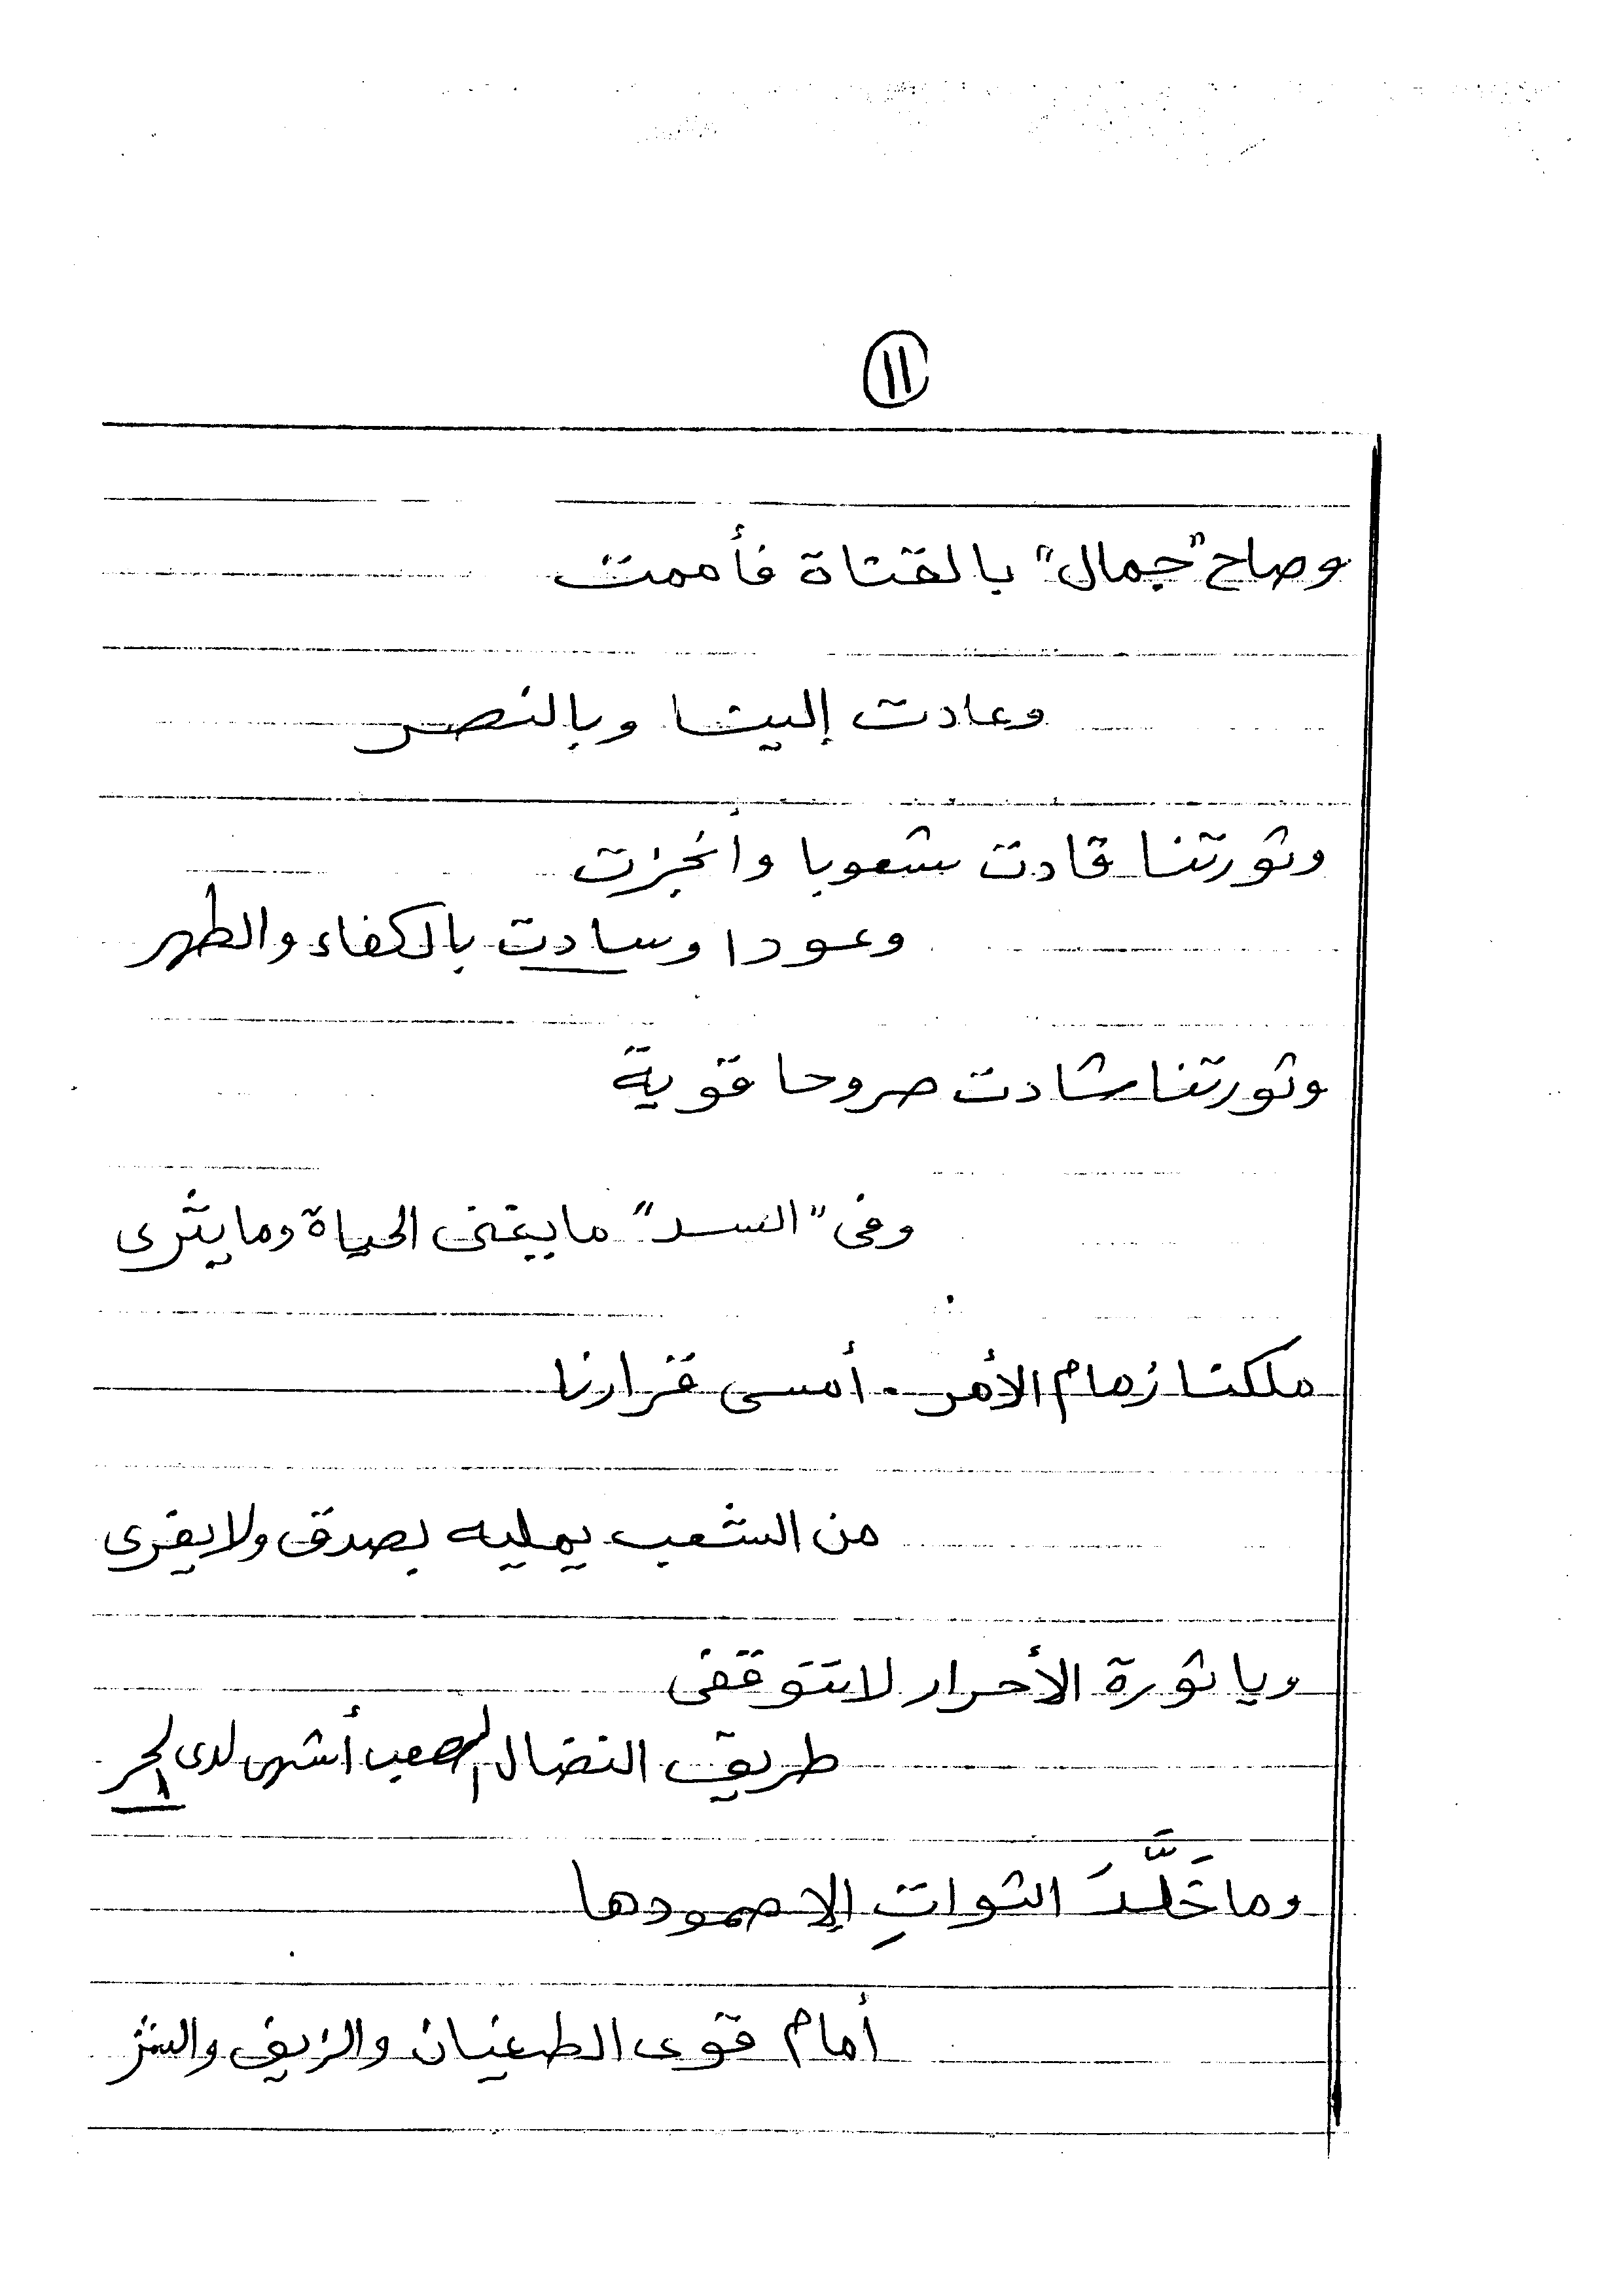 ١١
وصاح "جمال" بالقناة فأممت
وعادت إلينا وبالنصر
وثورتنا قادت شعوبا وأنجزت
وعودا وسادت بالكفاء والطهر
وثورتنا شادت صروحا قوية
وفى "السد" ما يغنى الحياة وما يثرى
ملكنا زمام الأمر . أمسى قرارنا
من الشعب يمليه بصدق ولا يغرى
ويا ثورة الأحرار لا تتوقفى
طريق النضال الصعب أشهى لدى الحر
وما خَلَّدَ الثوراتِ إلا صمودها
أمام قوى الطغيان والزيف والشر